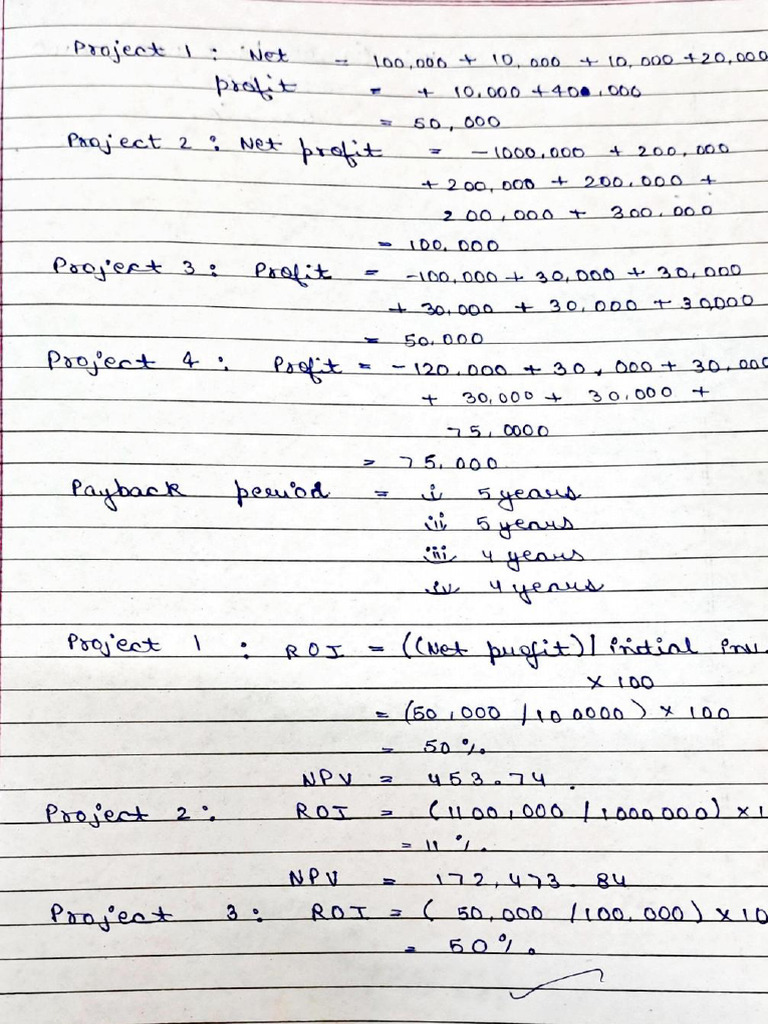 Project 1 : Net = 100,000 + 10,000 + 10,000 +20,000
profit = + 10,000 +400,000
= 50,000
Project 2 : Net profit = -1000,000 + 200,000
+ 200,000 + 200,000 +
200,000 + 300,000
= 100,000
Project 3 : Profit = -100,000 + 30,000 + 30,000
+ 30,000 + 30,000 + 30,000
= 50,000
Project 4 : Profit = -120,000 + 30,000 + 30,000
+ 30,000 + 30,000 +
75,0000
= 75,000
Payback period = i 5 years
ii 5 years
iii 4 years
iv 4 years
Project 1 : ROI = ((Net profit) / initial inv
× 100
= (50,000 / 100000) × 100
= 50%
NPV = 453.74
Project 2 : ROI = (1100,000 / 1000000) × 1
= 11 %
NPV = 172,473.84
Project 3 : ROI = ( 50,000 / 100,000) × 10
= 50%